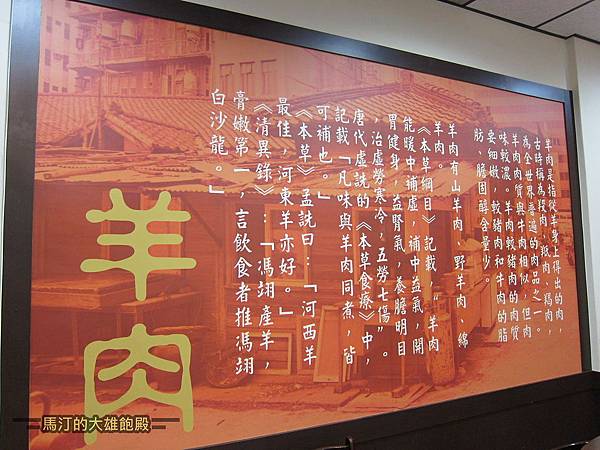 羊肉是指從羊身上得出的肉，
古時稱為羖肉、羝肉、羯肉，
為全世界普遍的肉品之一。
羊肉肉質與牛肉相似，但肉
味較濃。羊肉較豬肉的肉質
要細嫩，較豬肉和牛肉的脂
肪、膽固醇含量少。
羊肉有山羊肉、野羊肉、綿
羊肉。
《本草綱目》記載，“羊肉
能暖中補虛，補中益氣，開
胃健身，益腎氣，養膽明目
，治虛勞寒冷，五勞七傷”。
唐代孟詵的《本草食療》中，
記載「凡味與羊肉同煮，皆
可補也。」
《本草》孟詵曰：「河西羊
最佳，河東羊亦好。」
《清異錄》：「馮翊產羊，
膏嫩第一，言飲食者推馮翊
白沙龍。」
羊肉
馬汀的大雄飽殿